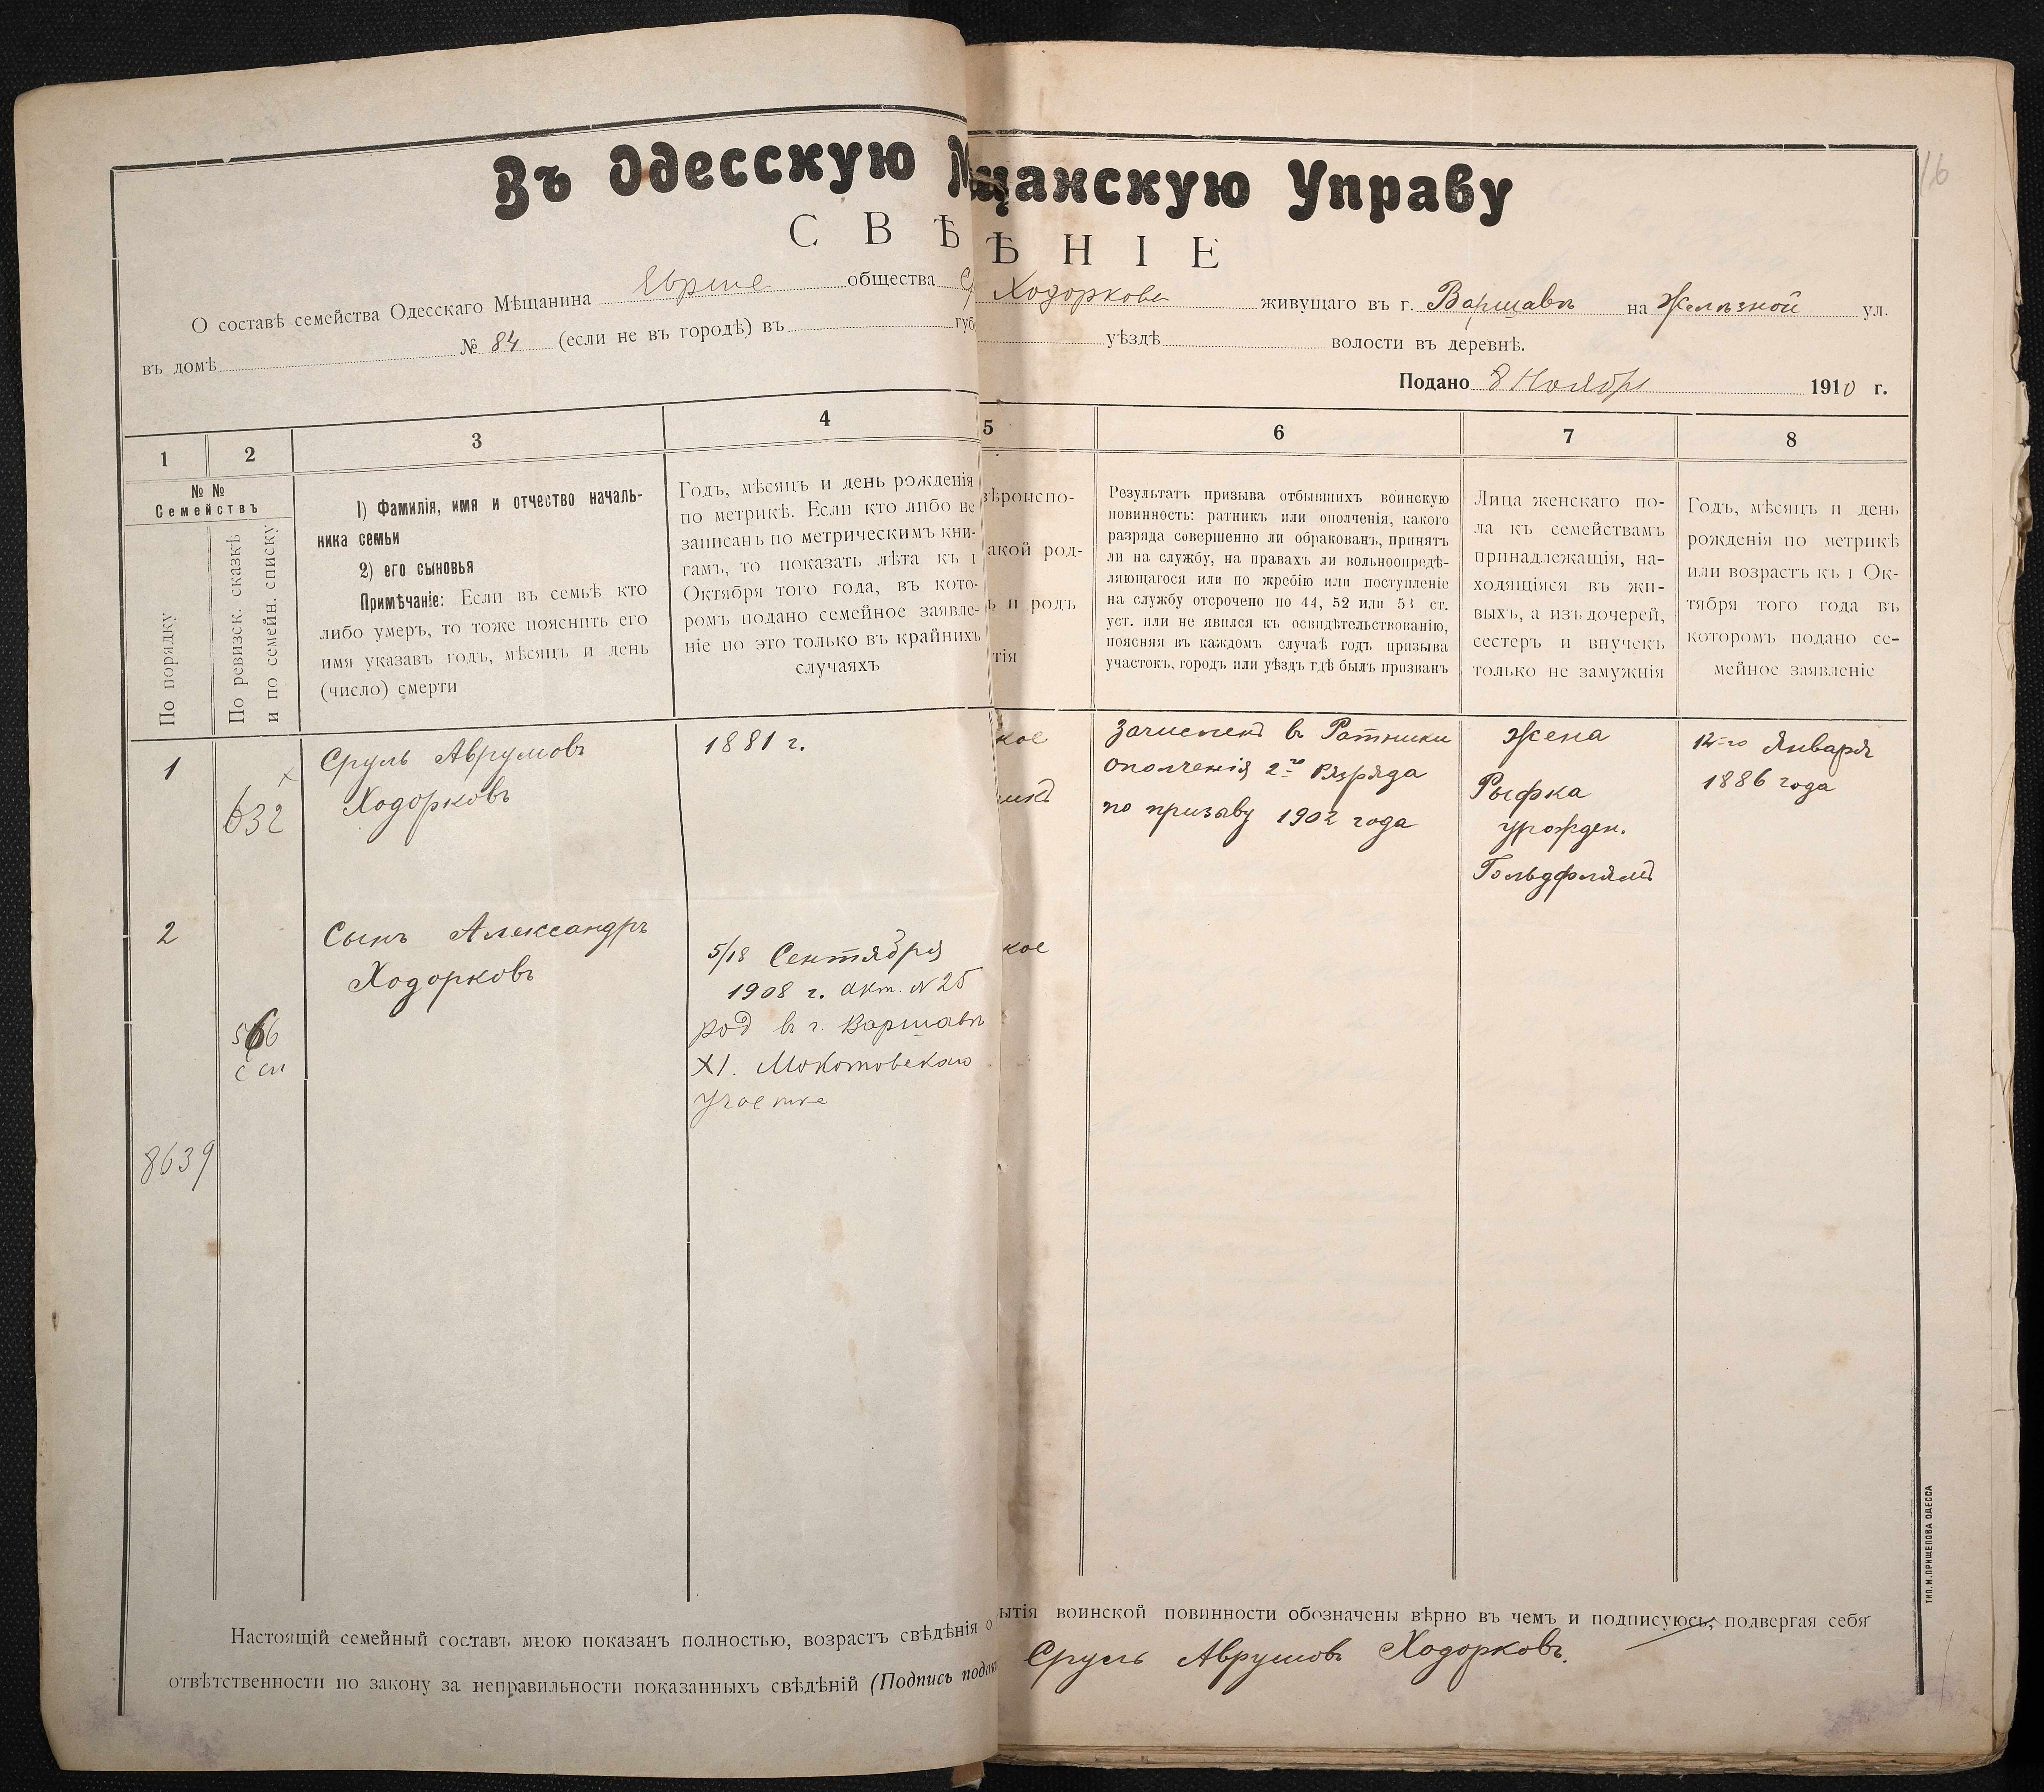 Въ Одесскую М щанскую Управу
СВѢ ѢНІЕ
О составѣ семейства Одесскаго Мѣщанина общества Ходоркова живущаго въ г. Варшавѣ на Желѣзной ул.
въ домѣ № 84 (если не въ городѣ) въ губ уѣздѣ волости въ деревнѣ.
Подано 8 Ноября 1910 г.
1 2 3 4 5 6 7 8
№№
Семействъ
По порядку
По ревизск. сказкѣ
и по семейн. списку
1) Фамилія, имя и отчество началь-
ника семьи
2) его сыновья
Примѣчаніе: Если въ семьѣ кто
либо умеръ, то тоже пояснить его
имя указавъ годъ, мѣсяцъ и день
(число) смерти
Годъ, мѣсяцъ и день рожденія
по метрикѣ. Если кто либо не
записанъ по метрическимъ кни-
гамъ, то показать лѣта къ 1
Октября того года, въ кото-
ромъ подано семейное заявле-
ніе но это только въ крайнихъ
случаяхъ
вѣроиспо-
акой род-
ь и родъ
тія
Результатъ призыва отбывшихъ воинскую
повинность: ратникъ или ополченія, какого
разряда совершенно ли обракованъ, принятъ
ли на службу, на правахъ ли вольноопредѣ-
ляющагося или по жребію или поступленіе
на службу отсрочено по 44, 52 или 53 ст.
уст. или не явился къ освидѣтельствованію,
поясняя въ каждомъ случаѣ годъ призыва
участокъ, городъ или уѣздъ гдѣ былъ призванъ
Лица женскаго по-
ла къ семействамъ
принадлежащія, на-
ходящіяся въ жи-
выхъ, а изъ дочерей,
сестеръ и внучекъ
только не замужнія
Годъ, мѣсяцъ и день
рожденія по метрикѣ
или возрастъ къ 1 Ок-
тября того года въ
которомъ подано се-
мейное заявленіе
1
632
Сруль Аврумовъ
Ходорковъ
1881 г.
кое
Зачислен в Ратники
ополченія 2го Разряда
по призыву 1902 года
Жена
Рыфка
урожден.
Гольдфлям
12-го Января
1886 года
2
Сынъ Александръ
Ходорковъ
5/18 Сентября
1908 г. акт. N 25
род в г. Варшавѣ
XI. Мокотовскаго
участка
кое
8639
Настоящій семейный составъ мною показанъ полностью, возрастъ свѣдѣнія о ытія воинской повинности обозначены вѣрно въ чемъ и подписуюсь, подвергая себя
отвѣтственности по закону за неправильности показанныхъ свѣдѣній (Подпись Сруль Аврумовъ Ходорковъ.
ТИП. М. ПРИЩЕПОВА ОДЕССА
16